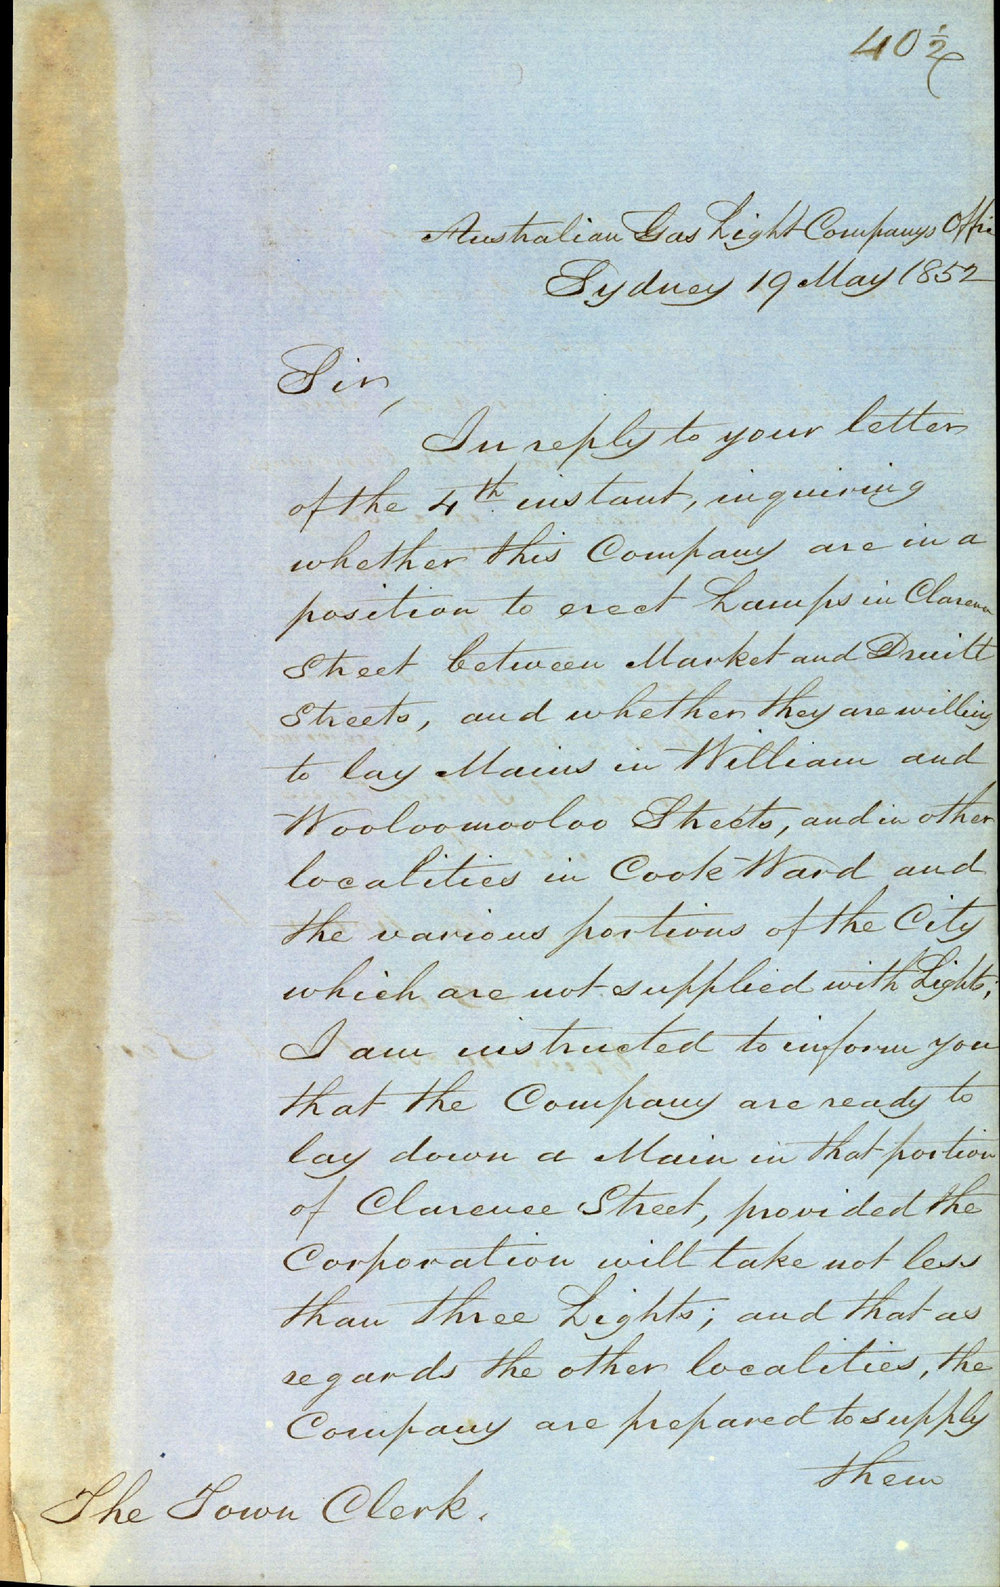 40 1/2
Australian Gas Light Companys Offi
Sydney 19 May 1852
Sir,
In reply to your letter
of the 4th instant, inquiring
whether this Company are in a
position to erect Lamps in Claren
Street between Market and Druitt
Streets, and whether they are willing
to lay Mains in William and
Wooloomooloo Streets, and in other
localities in Cook Ward and
the various portions of the City
which are not supplied with Lights;
I am instructed to inform you
that the Company are ready to
lay down a Main in that portion
of Clarence Street, provided the
Corporation will take not less
than three Lights; and that as
regards the other localities, the
Company are prepared to supply
them
The Town Clerk.